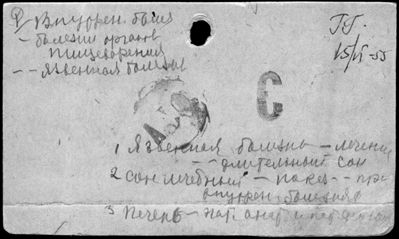 Внутрен. болез
- болезни органов
пищеварения
- - язвенная болезнь
15/VI-55
С
1 Язвенная болезнь - лечение
- - длительный сон
2 сон лечебный - показ - при
внутрен. болезнях
3 Печень - пат. анат. и